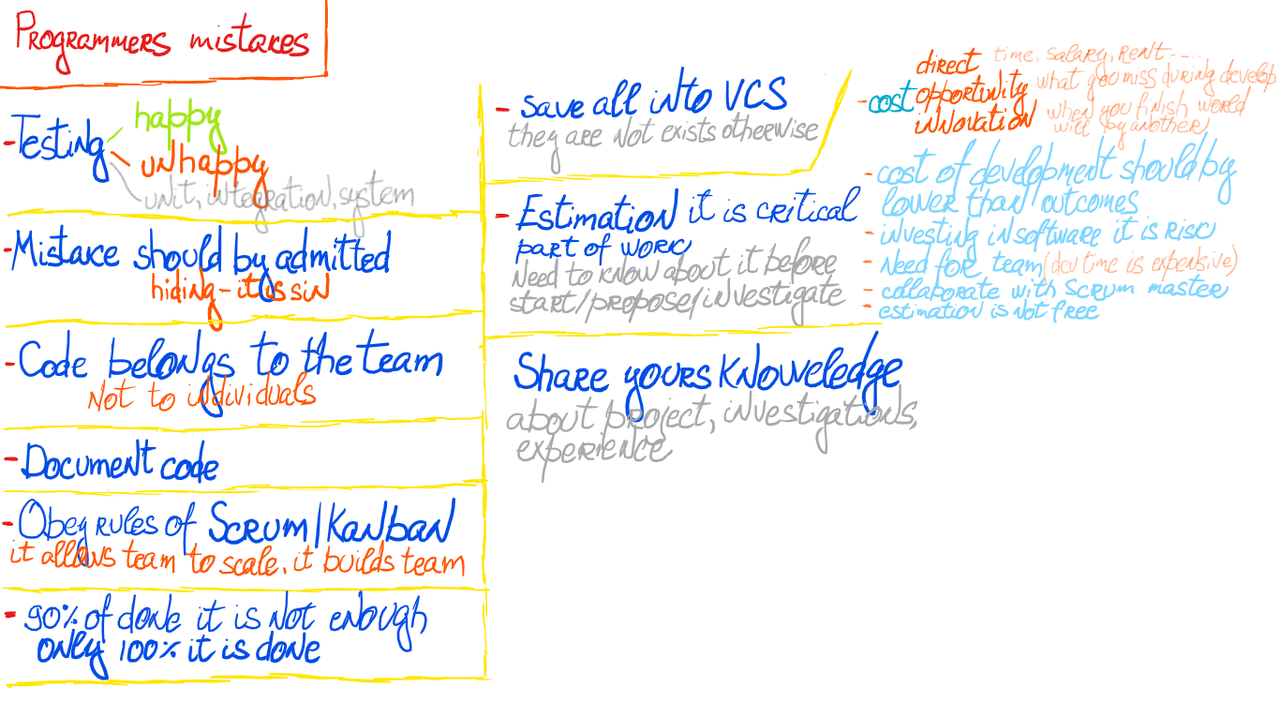 Programmers mistakes
- Testing
happy
unhappy
unit, integration, system
- Mistake should by admitted
hiding - it is sin
- Code belongs to the team
Not to individuals
- Document code
- Obey rules of Scrum/Kanban
it allows team to scale, it builds team
- 90% of done it is not enough,
only 100% it is done
- save all into VCS
they are not exists otherwise
- Estimation it is critical
part of work
Need to know about it before
start/propose/investigate
Share yours Knoweledge
about project, investigations,
experience
- cost
direct time, salary, rent - ....
opportunity what you miss during develop
innovation when you finish world
will by another
- cost of development should by
lower than outcomes
- investing in software it is risk
- Need for team (dev time is expensive)
- collaborate with scrum master
- estimation is not free